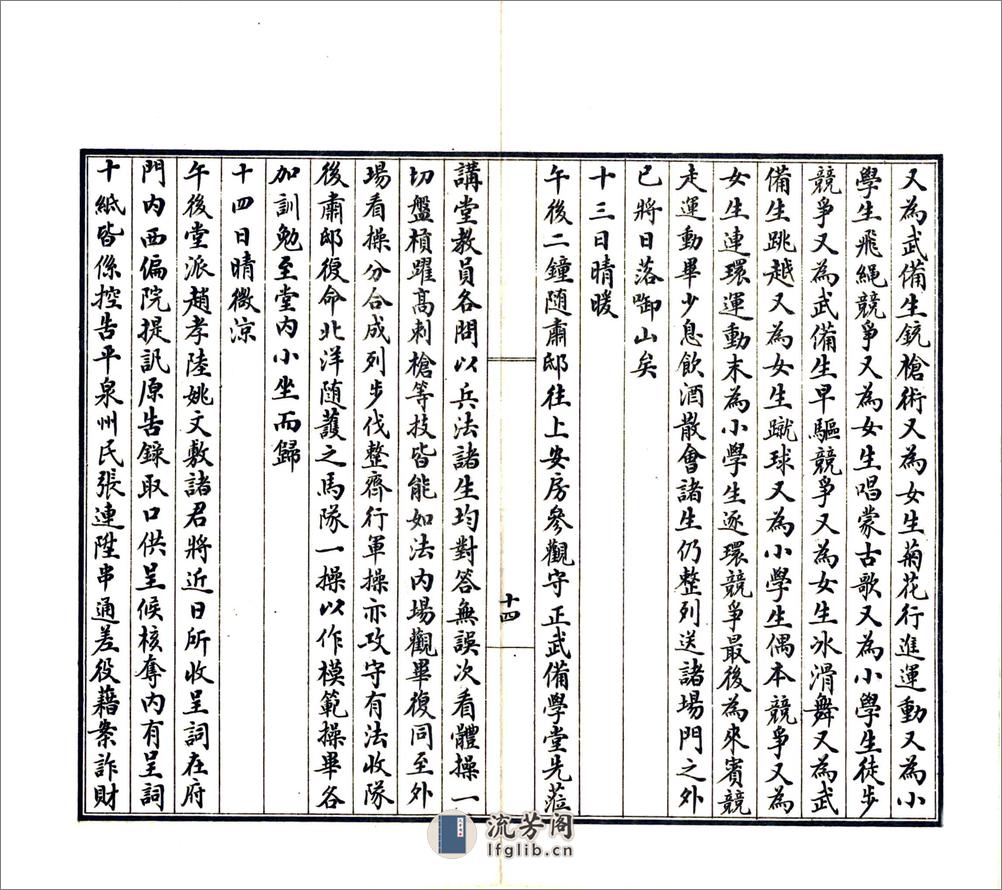 又為武備生銃槍術又為女生菊花行進運動又為小
學生飛繩競爭又為女生唱蒙古歌又為小學生徒步
競爭又為武備生早驅競爭又為女生冰滑舞又為武
備生跳越又為女生蹴球又為小學生偶本競爭又為
女生連環運動末為小學生逐環競爭最後為來賓競
走運動畢少息飲酒散會諸生仍整列送諸場門之外
已將日落啣山矣
十三日晴暖
午後二鐘随肅邸往上安房參觀守正武備學堂先蒞
十四
講堂教員各問以兵法諸生均對答無誤次看體操一
切盤槓躍高刺槍等技皆能如法内場觀畢復同至外
場看操分合成列步伐整齊行軍操亦攻守有法收隊
後肅邸復命北洋随護之馬隊一操以作模範操畢各
加訓勉至堂内小坐而歸
十四日晴微涼
午後堂派趙孝陸姚文敷諸君將近日所收呈詞在府
門内西偏院提訊原告錄取口供呈候核奪内有呈詞
十紙皆係控告平泉州民張連陞串通差役藉案詐財
流芳阁
lfglib.cn